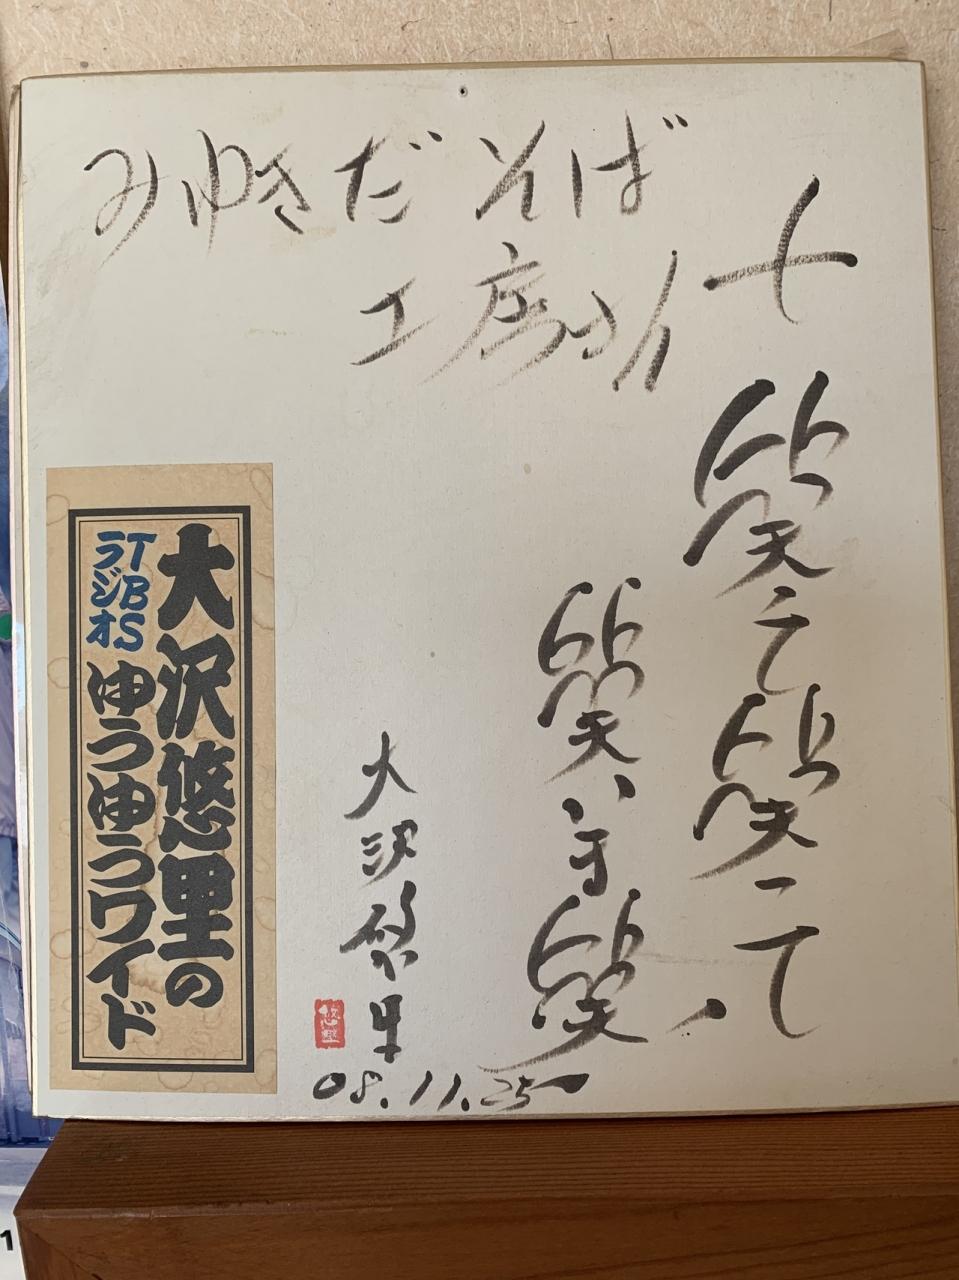 みゆきだそば
工房さん
七笑って笑って、
笑いま笑
大沢悠里
08.11.25
大沢悠里の
TBSラジオ
ゆうゆうワイド